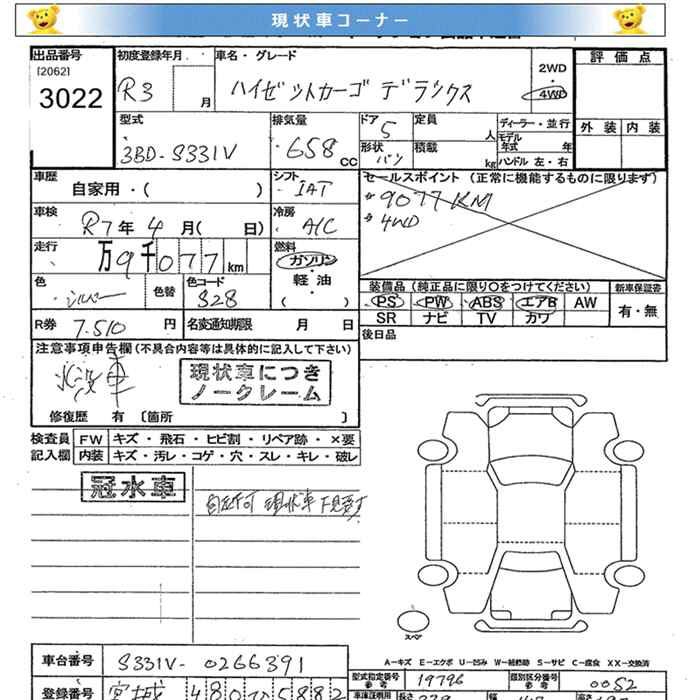 現状車コーナー
出品番号 初度登録年月 車名・グレード 評価点
[2062]
3022 R3 月 ハイゼットカーゴ デラックス 2WD 4WD
型式 排気量 ドア 定員 ディーラー・並行 外装 内装
3BD-S331V 658 CC 5 人 モデル年式 年
形状 バン 積載 kg ハンドル 左・右
車歴 シフト セールスポイント (正常に機能するものに限ります)
自家用・( ) IAT
車検 冷房 #9077KM
R7年4月( 日) A/C #4WD
走行 燃料
万9千077km ガソリン
軽油
( )
色 色替 色コード 装備品 (純正品に限り○をつけてください) 新車保証書
シルバー S28 PS PW ABS エアB AW 有・無
SR ナビ TV カワ
R券 7.510 円 名変通知期限 月 日 後日品
注意事項申告欄 (不具合内容等は具体的に記入して下さい)
水没車 現状車につき
ノークレーム
修復歴 有 〔箇所 〕
検査員 FW キズ・飛石・ヒビ割・リペア跡・×要
記入欄 内装 キズ・汚レ・コゲ・穴・スレ・キレ・破レ
冠水車
現状車 下見要す
スペア
A−キズ E−エクボ U−凹み W−補修跡 S−サビ C−腐食 XX−交換済
車台番号 S331V-0266391 型式指定番号 参考 19796 類別区分番号 参考 0052
登録番号 宮城 480